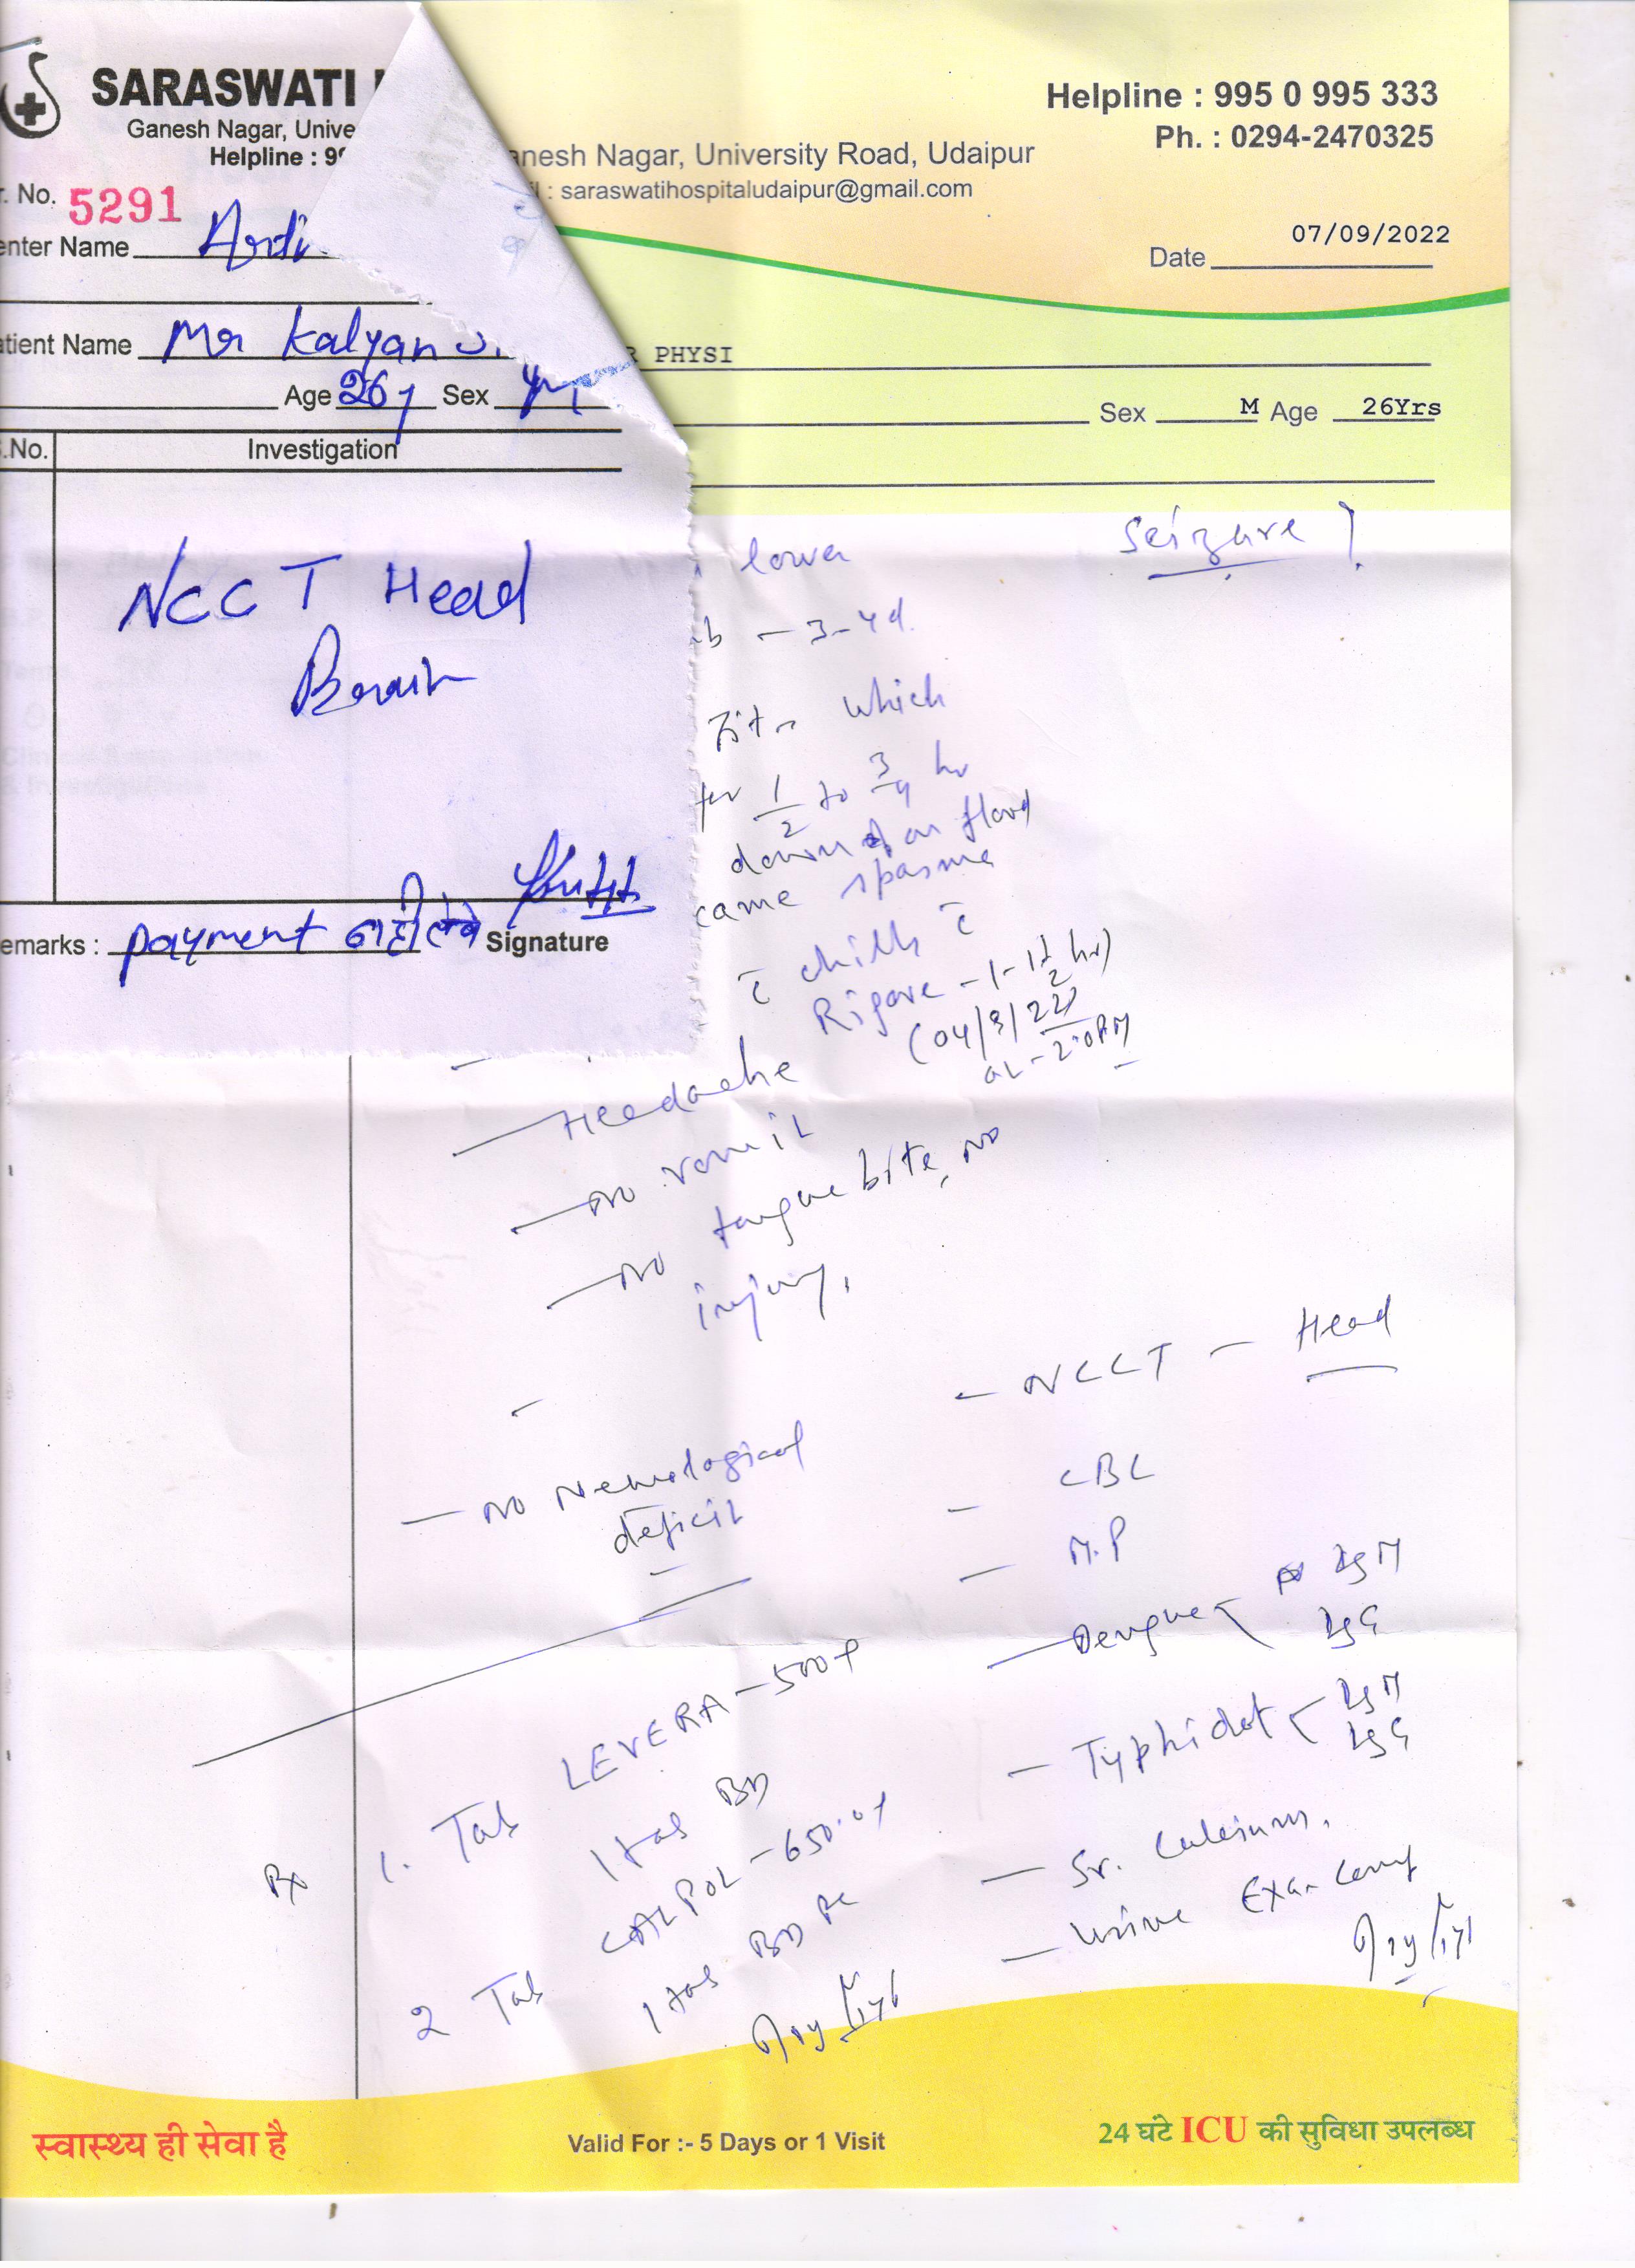 SARASWATI
Ganesh Nagar, Unive
Helpline : 9
. No. 5291
enter Name
atient Name Mr Kalyan
Age 26 y Sex M
.No. Investigation
NCCT Head
Brain
emarks : payment नहीं लेवे Signature
Helpline : 995 0 995 333
Ph. : 0294-2470325
anesh Nagar, University Road, Udaipur
: saraswatihospitaludaipur@gmail.com
Date 07/09/2022
R PHYSI
Sex M Age 26Yrs
Seizure ?
lower
b - 3-4d.
Fits which
for 1/2 to 3/4 hr
down on
came spasme
c̄ chills c̄
Rigore - 1-1 1/2 hr)
(04/9/22
at - 2.0PM
- Headache
- no vomit
- no tongue bite, no
injury,
- no Neurological
deficit
- NCCT - Head
- CBC
- M.P
- Dengue IgM
IgG
- Typhidot IgM
IgG
- Sr. Calcium.
- Urine Exa. comp
Rx
1. Tab LEVERA - 500
1 tab BD
2 Tab CALPOL - 650
1 tab BD PC
स्वास्थ्य ही सेवा है
Valid For :- 5 Days or 1 Visit
24 घंटे ICU की सुविधा उपलब्ध